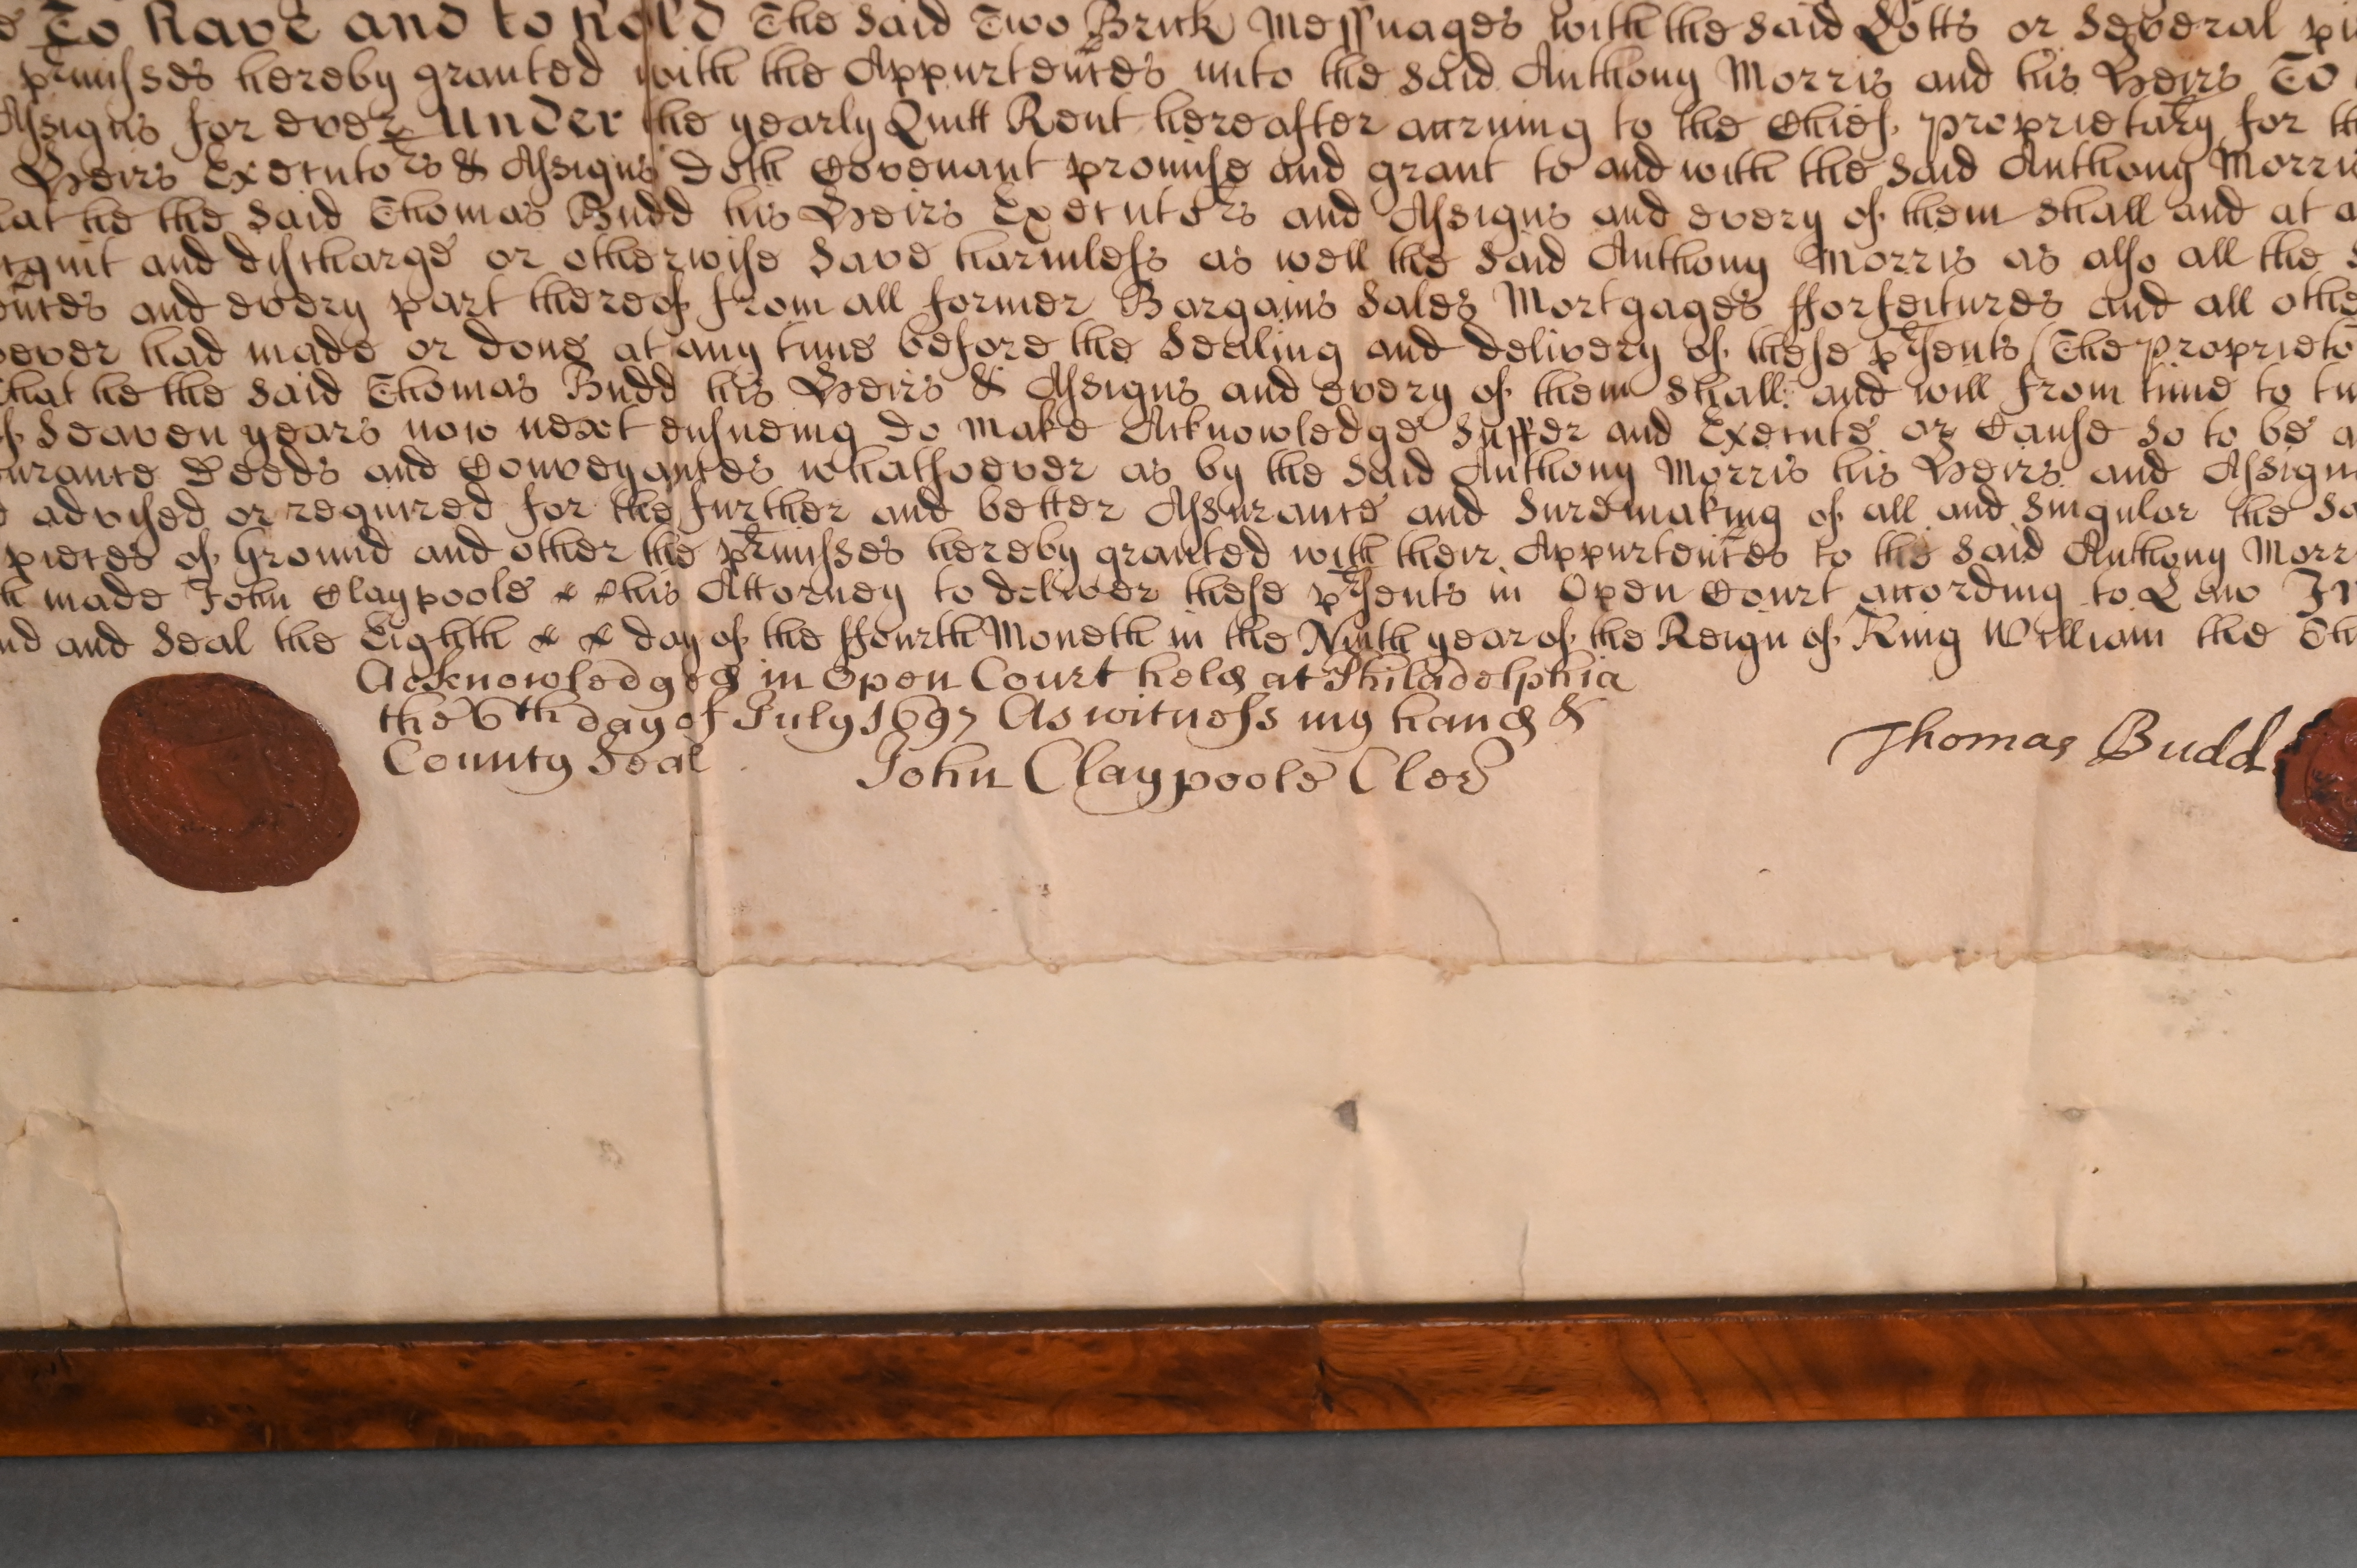 To have and to hold The said Two Brick Messuages with the said Lotts or several
prmisses hereby granted with the Appurtences unto the said Anthony Morris and his Heirs To
Assigns for ever Under the yearly Quitt Rent hereafter accruing to the Chief proprietary for
Heirs Executors & Assigns doth Covenant promise and grant to and with the said Anthony Morris
he the said Thomas Budd his Heirs Executors and Assigns and every of them shall and at
acquit and discharge or otherwise save harmless as well the said Anthony Morris as also all the
and every part thereof from all former Bargains Sales Mortgages fforfeitures and all
had made or done at any time before the Sealing and delivery of these prsents (The
that he the said Thomas Budd his Heirs & Assigns and every of them shall and will from time to
of Seaven years now next ensueing do make Acknowledge Suffer and Execute or Cause so to be
Deeds and Conveyances whatsoever as by the said Anthony Morris his Heirs and
advised or required for the further and better Assurance and suremaking of all and singular the
pieces of Ground and other the prmisses hereby granted with their Appurtences to the said Anthony
made John Claypoole his Attorney to deliver these prsents in Open Court according to Law
and Seal the Eighth day of the ffourth Moneth in the Ninth year of the Reign of King William the
Acknowledged in Open Court held at Philadelphia
the 6th day of July 1697 As witness my hand &
County Seal
John Claypoole Cler
Thomas Budd